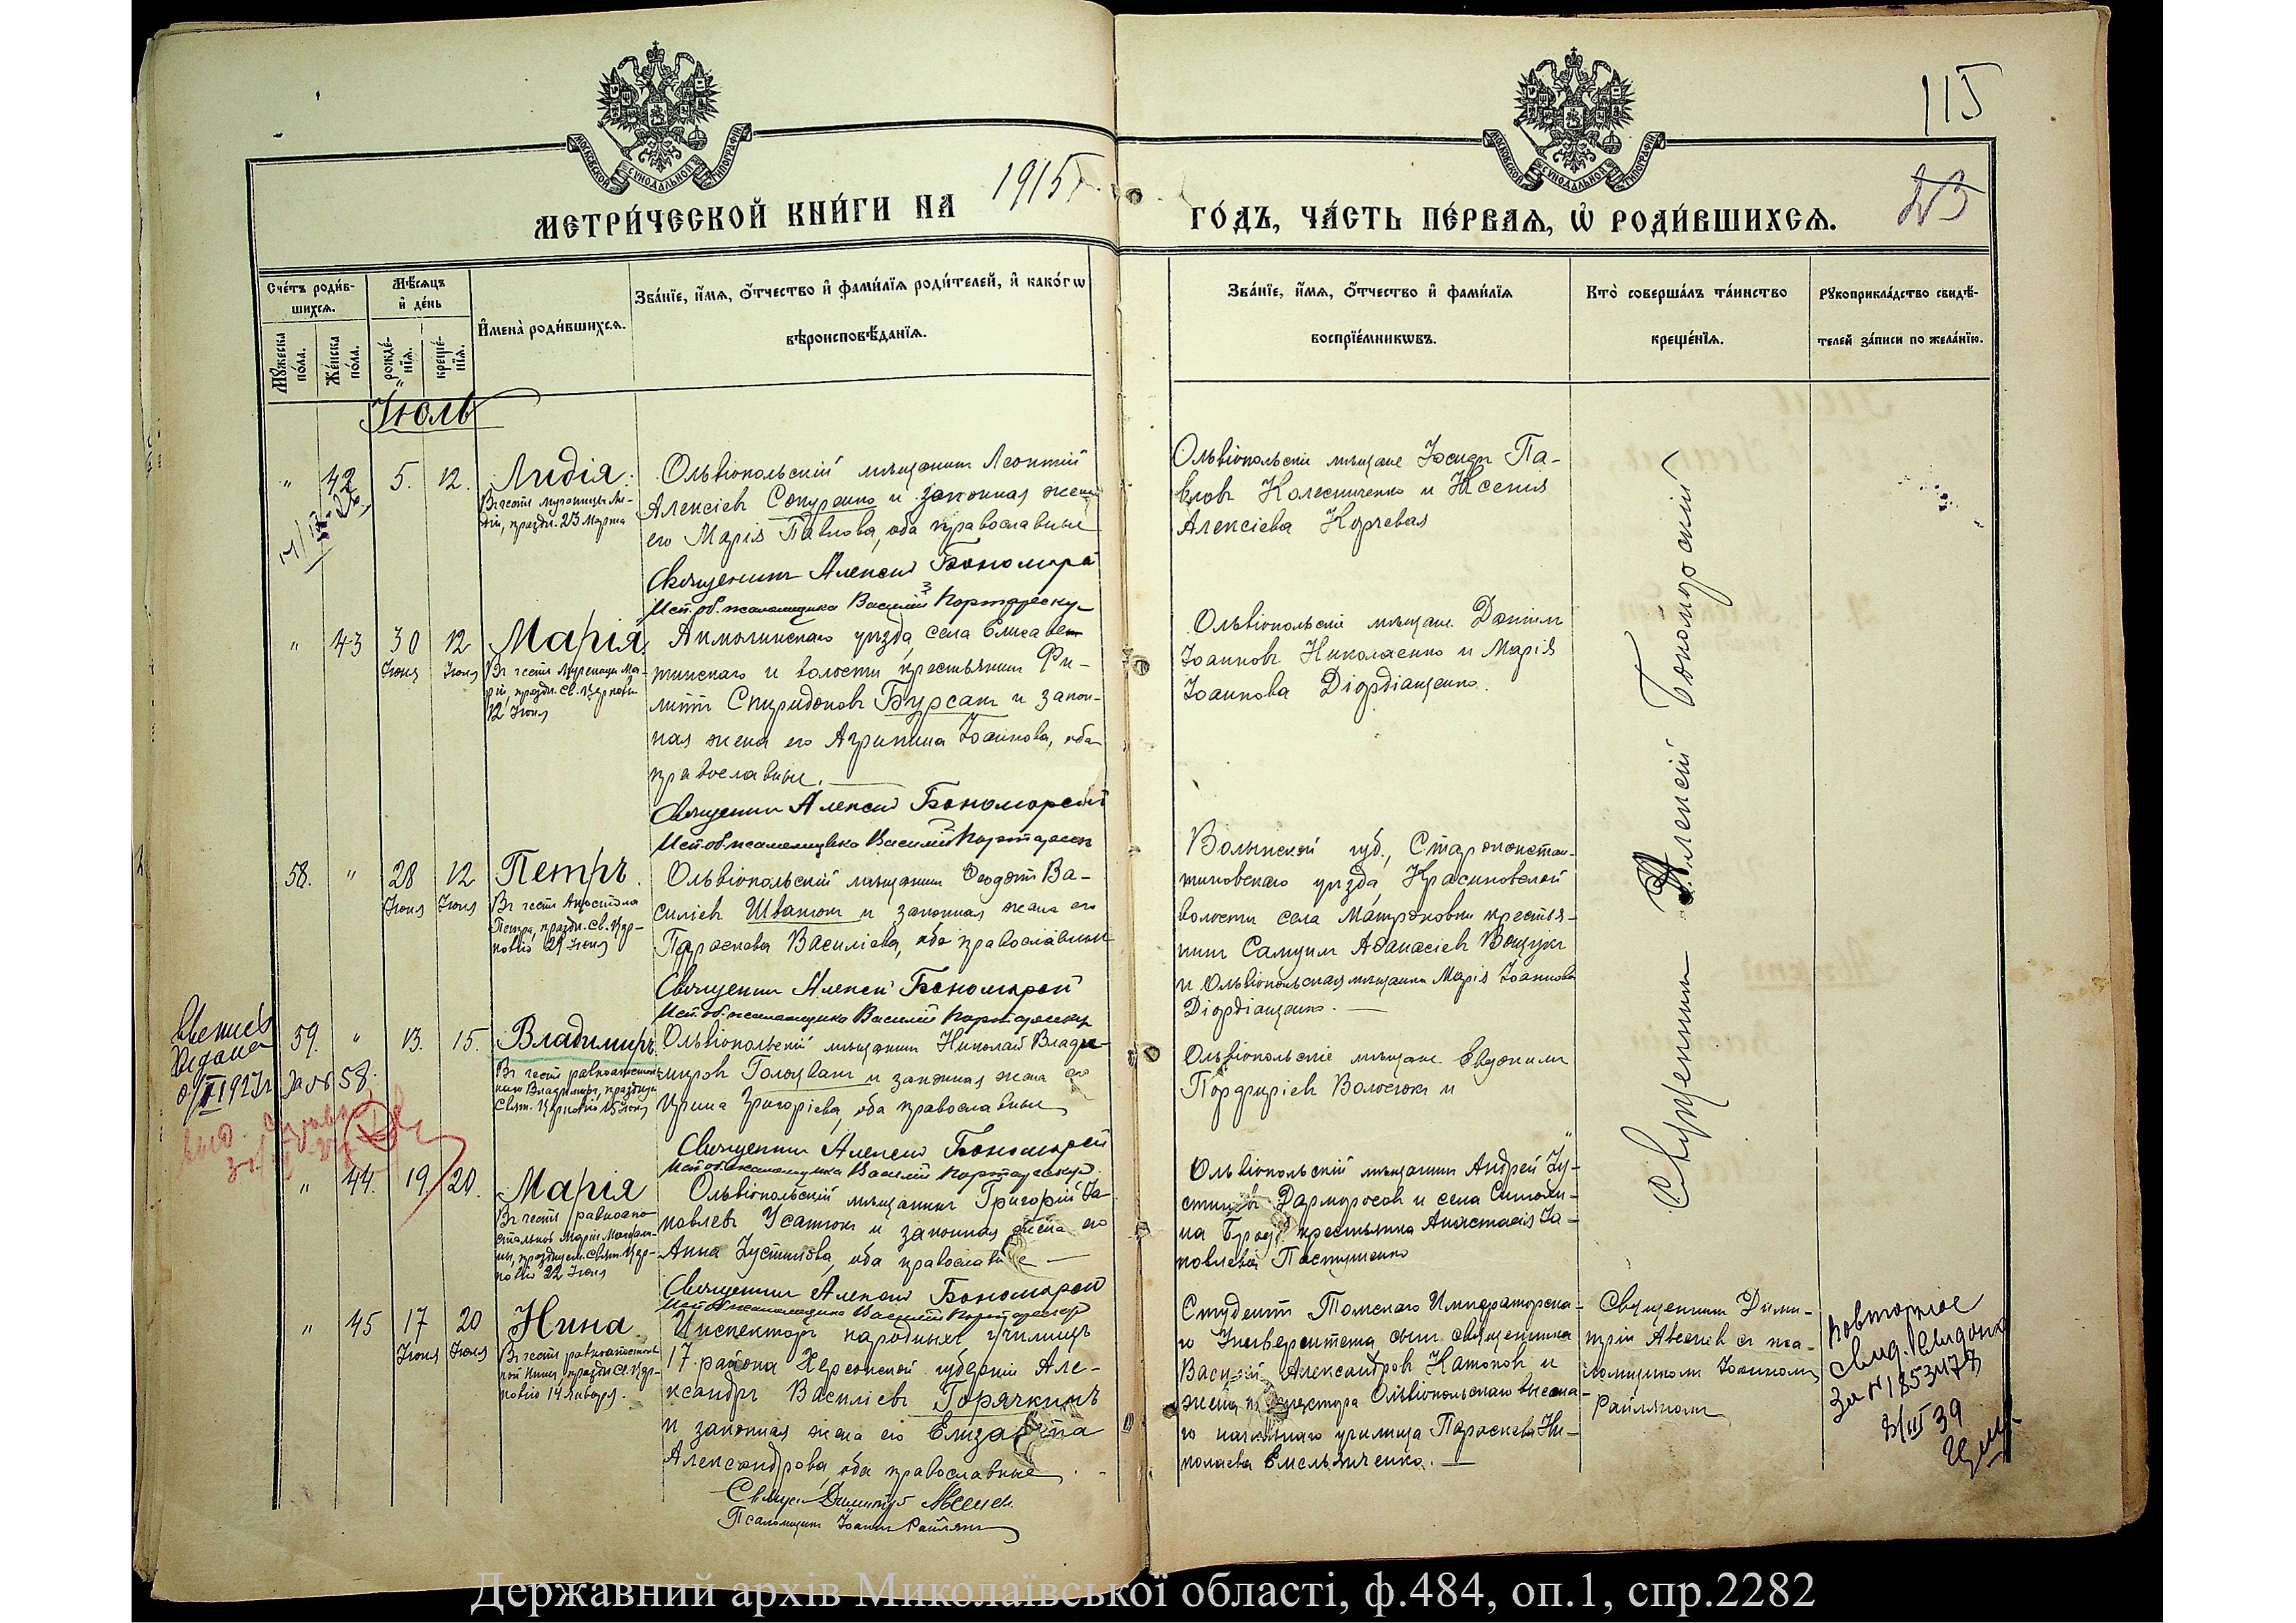 115
23
МЕТРИ́ЧЕСКОЙ КНИ́ГИ НА 1915 г.
ГО́ДЪ, ЧА́СТЬ ПЕ́РВАѦ, Ѡ РОДИ́ВШИХСѦ.
МОСКОВСКОЙ СѴНОДАЛЬНОЙ ТИПОГРАФІИ
МОСКОВСКОЙ СѴНОДАЛЬНОЙ ТИПОГРАФІИ
Сче́тъ роди́в-
шихсѧ.
Мꙋжеска по́ла.
Же́нска по́ла.
Мѣ́сѧцъ и҆ де́нь
рожде́-нїѧ.
креще́-нїѧ.
И҆мена̀ роди́вшихсѧ.
Зва́нїе, и҆́мѧ, ѻ҆́тчество и҆ фами́лїѧ роди́телей, и҆ како́гѡ
вѣроисповѣ́данїѧ.
Зва́нїе, и҆́мѧ, ѻ҆́тчество и҆ фами́лїѧ
воспрїе́мникѡвъ.
Кто̀ соверша́лъ та́инство
креще́нїѧ.
Рꙋкоприкла́дство свидѣ́-
телей за́писи по жела́нїю.
Іюль
" 42 5. 12. Лидія.
Въ честь мученицы Ли-
діи, праздн. 23 Марта
Ольвіопольскій мѣщанинъ Леонтій
Алексіевъ и законная жена
его Марія Павлова, оба православные
Священникъ Алексій Бономорскій
Исп. об. псаломщика Василій
Ольвіопольскіе мѣщане Іосифъ Па-
вловъ Колесниченко и Ксенія
Алексіева Корчевая
" 43 30 Іюня 12 Іюля Марія
12 Іюля
Акмолинскаго уѣзда, села Елисавет-
тинскаго и волости крестьянинъ Фи-
липпъ Спиридоновъ Бурсакъ и закон-
ная жена его Агрипина Іоаннова, оба
православные.
Священникъ Алексій Бономорскій
Исп. об. псаломщика Василій
Ольвіопольскіе мѣщане Даніилъ
Іоанновъ Николаенко и Марія
Іоаннова Діордіященко.
58. " 28 Іюня 12 Іюля Петръ.
Въ честь Апостола
Петра, праздн. Св. Цер-
ковію 29 Іюня
Ольвіопольскій мѣщанинъ Ѳеодотъ Ва-
силіевъ Иванюкъ и законная жена его
Параскева Василіева, оба православные
Священникъ Алексій Бономорскій
Исп. об. псаломщика Василій
Волынской губ., Староконстан-
тиновскаго уѣзда Красиловской
волости села крестья-
нинъ Самуилъ Аѳанасіевъ
и Ольвіопольская мѣщанка Марія Іоаннова
Діордіященко.
59. " 13. 15. Владиміръ.
Въ честь равноапостоль-
наго Владиміра, празднуем.
Свят. Церковію 15 Іюля
Ольвіопольскій мѣщанинъ Николай Влади-
міровъ Голоцванъ и законная жена его
Ирина Григоріева, оба православные
Священникъ Алексій Бономорскій
Исп. об. псаломщика Василій
Ольвіопольскіе мѣщане Евдокимъ
Порфиріевъ Волосюкъ и
выдана
1927г. за № 58.
" 44. 19. 20. Марія
Въ честь равноапо-
стольной Маріи Магдали-
ны, празднуем. Свят. Цер-
ковію 22 Іюля
Ольвіопольскій мѣщанинъ Григорій Іа-
ковлевъ Усатюкъ и законная жена его
Анна Іустинова, оба православные
Священникъ Алексій Бономорскій
Исп. об. псаломщика Василій
Ольвіопольскій мѣщанинъ Андрей Іу-
стиновъ и села Синюхи-
на Брода крестьянка Анастасія Іа-
ковлева Пастушенко
Священникъ Алексій Бономорскій
" 45 17 Іюня 20 Іюля Нина.
Въ честь равноапостоль-
ной Нины, праздн. Св. Цер-
ковію 14 Января.
Инспекторъ народныхъ училищъ
17 района Херсонской губерніи Але-
ксандръ Василіевъ Горячкинъ
и законная жена его Елизавета
Александрова, оба православные.
Священ. Димитрій
Псаломщикъ Іоаннъ Райлянъ
Студентъ Томскаго Императорска-
го Университета, сынъ священника
Василій Александровъ Катковъ и
жена инспектора Ольвіопольскаго высша-
го начальнаго училища Параскева Ни-
колаева Емельянченко.
Священникъ Дими-
трій съ пса-
ломщикомъ Іоанномъ
Райляномъ
повторное
свид. выдано
за № 1853478
3/III 39
Державний архів Миколаївської області, ф.484, оп.1, спр.2282